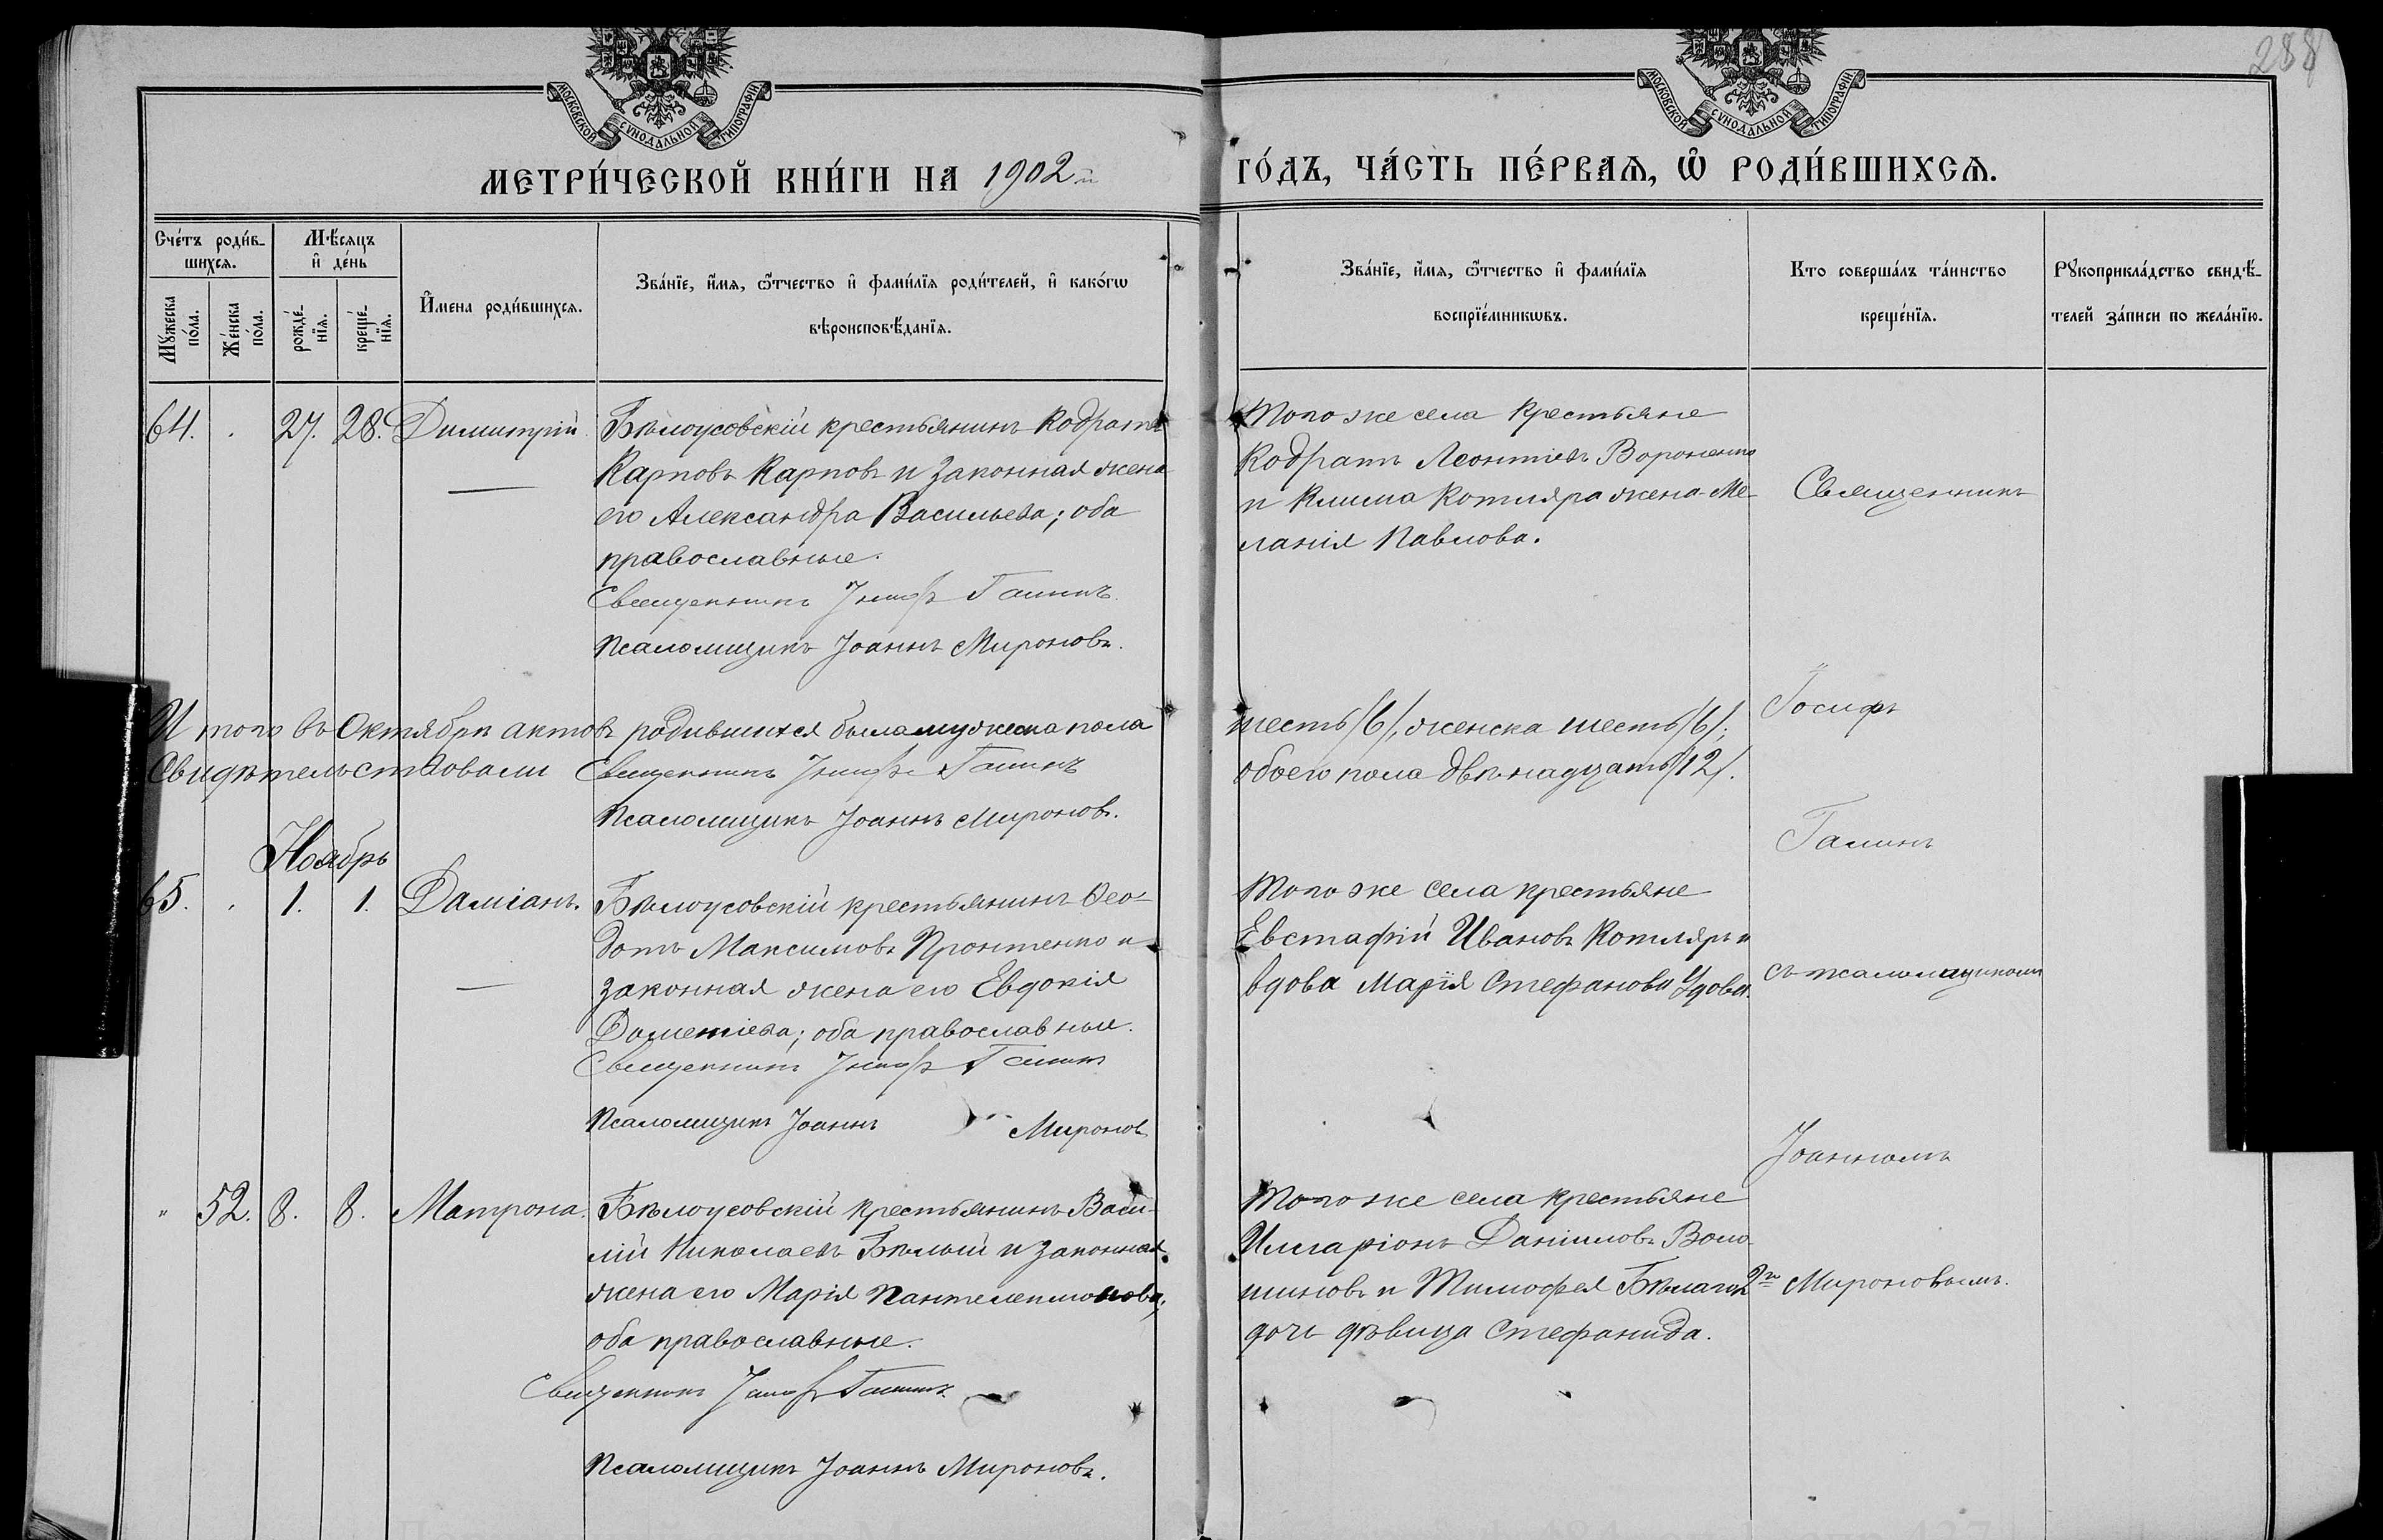 288
МОСКОВСКОЙ СѴНОДАЛЬНОЙ ТИПОГРАФІИ
МОСКОВСКОЙ СѴНОДАЛЬНОЙ ТИПОГРАФІИ
МЕТРИ́ЧЕСКОЙ КНИ́ГИ НА 1902 й
ГО́ДЪ, ЧА́СТЬ ПЕ́РВАѦ, Ѡ҆ РОДИ́ВШИХСѦ.
Сче́тъ роди́в-
шихсѧ.
Мꙋ́жеска
по́ла.
Же́нска
по́ла.
Мѣ́сѧцъ
и҆ де́нь
рожде́-
нїѧ.
креще́-
нїѧ.
И҆́мена роди́вшихсѧ.
Зва́нїе, и҆́мѧ, ѻ҆́тчество и҆ фами́лїѧ роди́телей, и҆ како́гѡ
вѣроисповѣ́данїѧ.
Зва́нїе, и҆́мѧ, ѻ҆́тчество и҆ фами́лїѧ
воспрїе́мникѡвъ.
Кто соверша́лъ та́инство
креще́нїѧ.
Рꙋкоприкла́дство свидѣ́-
телей за́писи по жела́нїю.
64. . 27. 28. Димитрій
Бѣлоусовскій крестьянинъ Кодратъ
Карповъ Карповъ и законная жена
его Александра Васильева; оба
православные.
Священникъ Іосифъ Галинъ.
Псаломщикъ Іоаннъ Мироновъ.
Того же села крестьяне
Кодратъ Леонтіевъ Вороненко
и Клима Котляра жена Ме-
ланія Павлова.
Священникъ
Итого въ Октябрѣ актовъ родившихся было мужеска пола
шесть /6/, женска шесть /6/;
Іосифъ
Свидѣтельствовали Священникъ Іосифъ Галинъ
обоего пола двѣнадцать /12/.
Псаломщикъ Іоаннъ Мироновъ.
Галинъ
Ноябрь
65. . 1. 1. Даміанъ.
Бѣлоусовскій крестьянинъ Ѳео-
дотъ Максимовъ Пронтенко и
законная жена его Евдокія
Дометіева; оба православные.
Священникъ Іосифъ Галинъ
Псаломщикъ Іоаннъ Мироновъ
Того же села крестьяне
Евстафій Ивановъ Котляръ и
вдова Марія Стефанова Удова.
съ псаломщикомъ
Іоанномъ
" 52. 8. 8. Матрона.
Бѣлоусовскій крестьянинъ Васи-
лій Николаевъ Бѣлый и законная
жена его Марія Пантелеимонова;
оба православные.
Священникъ Іосифъ Галинъ
Псаломщикъ Іоаннъ Мироновъ.
Того же села крестьяне
Илларіонъ Даніиловъ Воло-
шиновъ и Тимофея Бѣлаго 2й
дочь дѣвица Стефанида.
Мироновымъ.